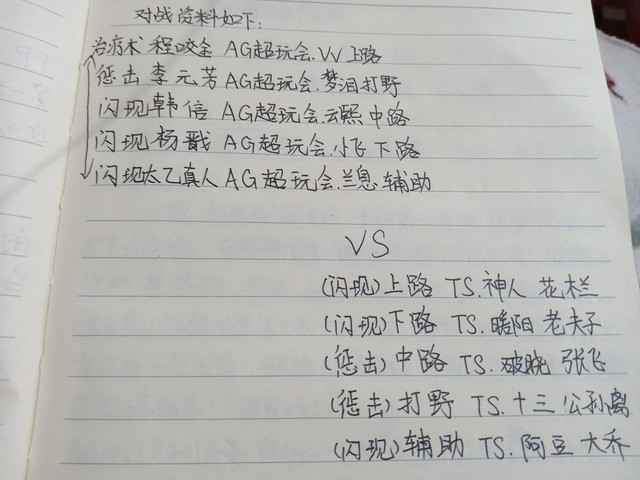 对战资料如下:
治疗术 程咬金 AG超玩会.VV 上路
惩击 李元芳 AG超玩会.梦泪打野
闪现韩信 AG超玩会.云熙 中路
闪现 杨戬 AG超玩会.小飞 下路
闪现太乙真人 AG超玩会.兰息 辅助
VS
(闪现)上路 TS.神人 花木兰
(闪现)下路 TS.暖阳 老夫子
(惩击)中路 TS.破晓 张飞
(惩击)打野 TS.十三 公孙离
(闪现)辅助 TS.阿豆 大乔